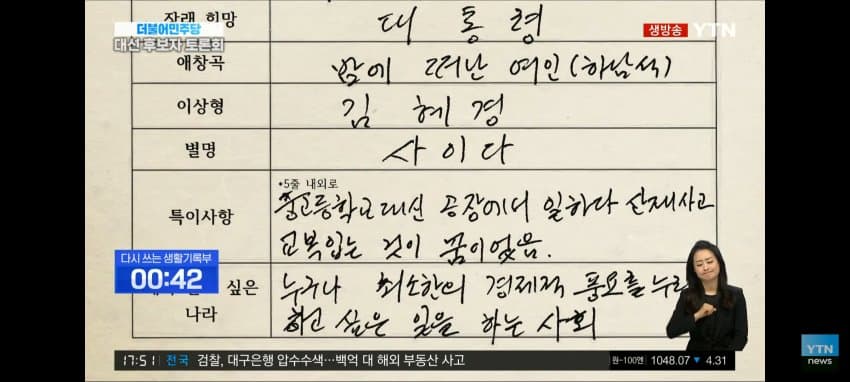 더불어민주당
대선 후보자 토론회
생방송 YTN
장래 희망 대통령
애창곡 밤에 떠난 여인(하남석)
이상형 김혜경
별명 사이다
특이사항 •5줄 내외로
중고등학교 대신 공장에서 일하다 산재사고
교복입는 것이 꿈이었음.
다시 쓰는 생활기록부
00:42
싶은
나라
누구나 최소한의 경제적 풍요를 누리
하고 싶은 일을 하는 사회
YTN
news
17:51 전국 검찰, 대구은행 압수수색…백억 대 해외 부동산 사고 원-100엔 1048.07 ▼ 4.31